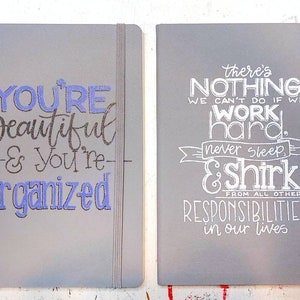 YOU'RE
beautiful
& you're
organized
there's
NOTHING
WE CAN'T DO IF W
WORK
hard,
never sleep,
& shirk
FROM ALL OTHER
RESPONSIBILITIE
in our lives